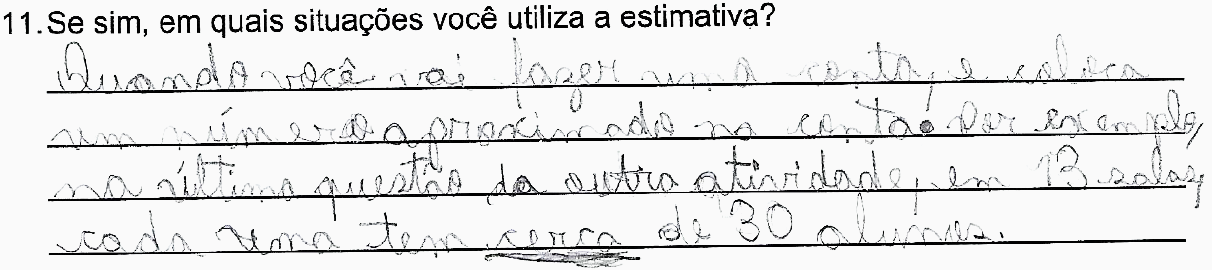 11. Se sim, em quais situações você utiliza a estimativa?
Quando você vai fazer uma conta, e coloca
um número aproximado na conta. Por exemplo,
na última questão da outra atividade, em 13 salas,
cada uma tem cerca de 30 alunos.